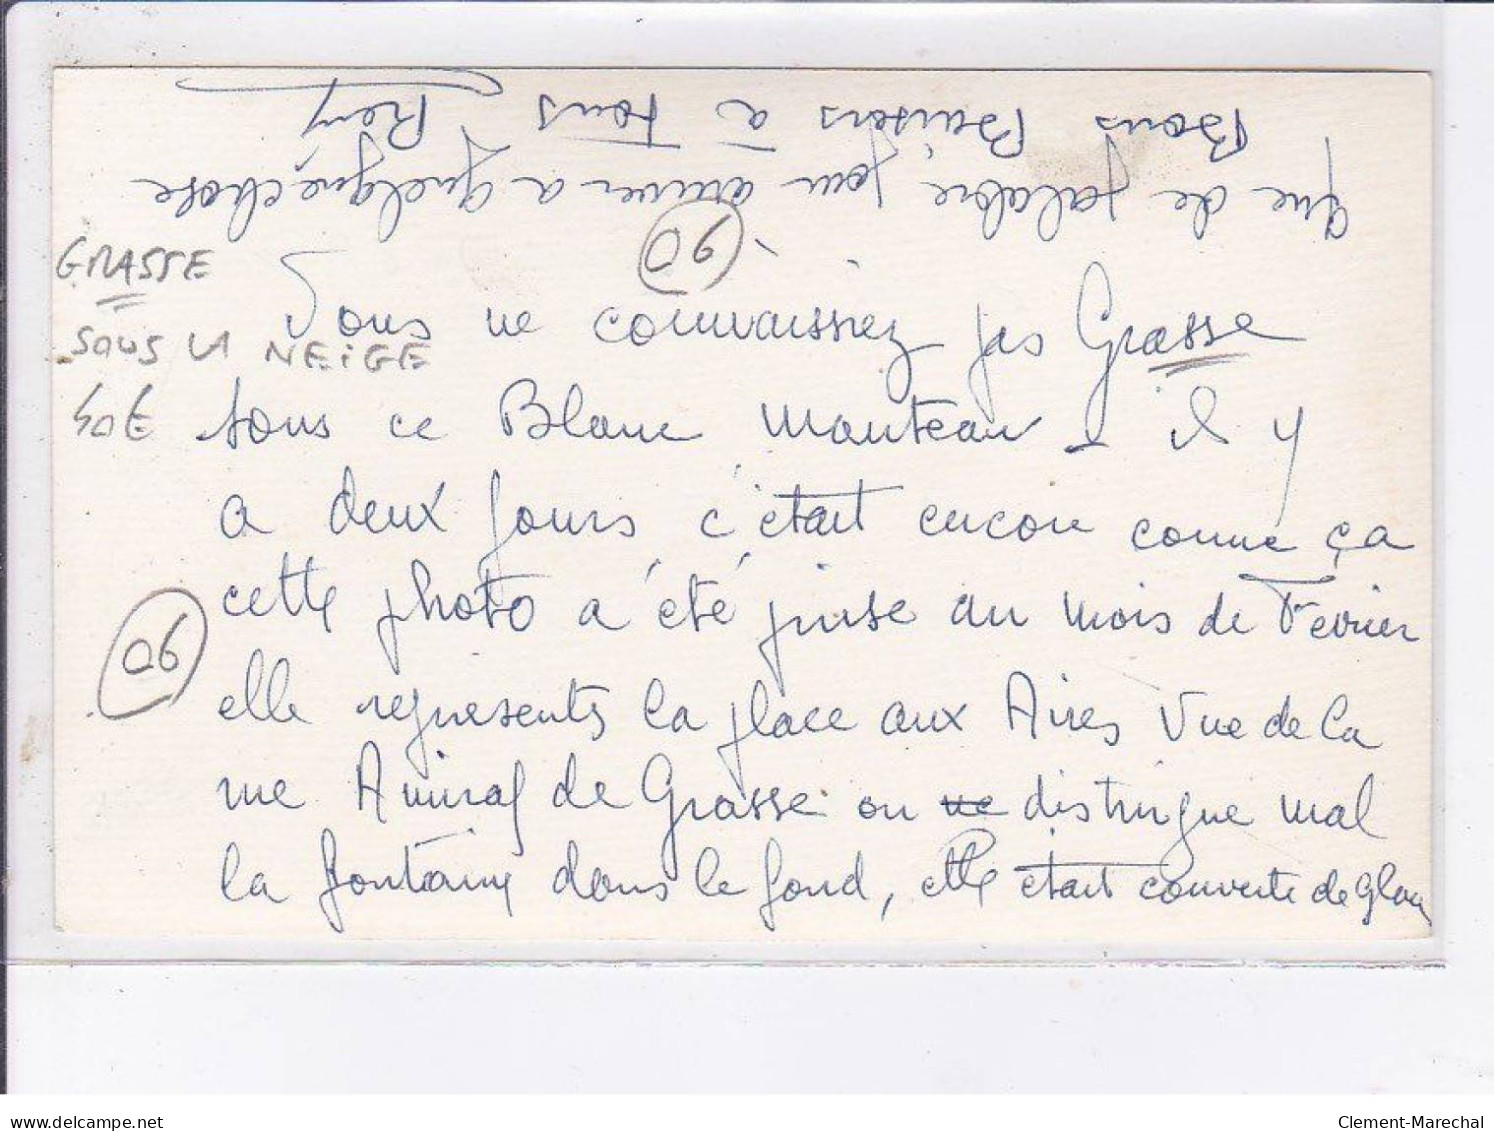 Vous ne connaissiez pas Grasse
sous ce Blanc Manteau - il y
a deux jours, c'était encore comme ça
cette photo a été prise au mois de Fevrier
elle represente la place aux Aires Vue de la
rue Amiral de Grasse on ne distingue mal
la fontaine dans le fond, elle était couverte de glace
que de palabre pour arriver a quelque chose
Bons Baisers à Tous
GRASSE
SOUS LA NEIGE
40€
06
06
delcampe.net
Clement-Marechal